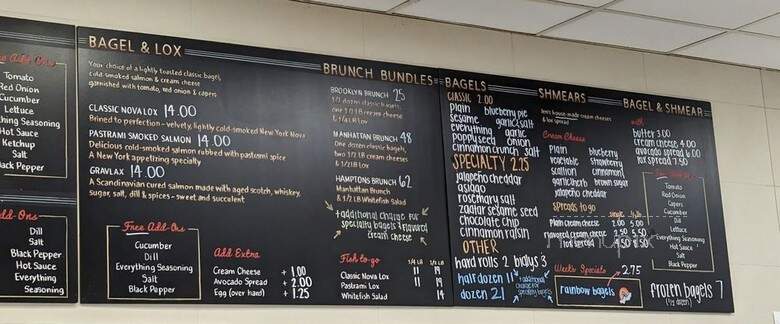 Free Add-Ons
Tomato
Red Onion
Cucumber
Lettuce
Everything Seasoning
Hot Sauce
Ketchup
Salt
Black Pepper
Add-Ons
Dill
Salt
Black Pepper
Hot Sauce
Everything
Seasoning
BAGEL & LOX
Your choice of a lightly toasted classic bagel,
cold-smoked salmon & cream cheese
garnished with tomato, red onion & capers
CLASSIC NOVA LOX 14.00
Brined to perfection - velvety, lightly cold-smoked New York Nova
PASTRAMI SMOKED SALMON 14.00
Delicious cold-smoked salmon rubbed with pastrami spice
A New York appetizing specialty
GRAVLAX 14.00
A Scandinavian cured salmon made with aged scotch, whiskey,
sugar, salt, dill & spices - sweet and succulent
Free Add-Ons
Cucumber
Dill
Everything Seasoning
Salt
Black Pepper
Add Extra
Cream Cheese + 1.00
Avocado Spread + 2.00
Egg (over hard) + 1.25
BRUNCH BUNDLES
BROOKLYN BRUNCH 25
1/2 dozen classic bagels,
one 1/2 LB cream cheese
& 1/4 LB lox
MANHATTAN BRUNCH 48
One dozen classic bagels,
two 1/2 LB cream cheeses
& 1/2 LB lox
HAMPTONS BRUNCH 62
Manhattan Brunch
& 1/2 LB Whitefish Salad
+additional charge for
specialty bagels & flavored
cream cheese
Fish to-go
1/4 LB 1/2 LB
Classic Nova Lox 11 19
Pastrami Lox 11 19
Whitefish Salad 14
BAGELS
CLASSIC 2.00
plain blueberry pie
sesame garlic salt
everything garlic
poppyseed onion
cinnamon crunch salt
SPECIALTY 2.25
jalapeño cheddar
asiago
rosemary salt
zaatar sesame seed
chocolate chip
cinnamon raisin
OTHER
hard rolls 2 bialys 3
half dozen 11
dozen 21
+ additional
charge for
specialty bagels
SHMEARS
house-made cream cheeses
& lox spread
Cream Cheese
plain blueberry
vegetable strawberry
scallion cinnamon
garlic herb brown sugar
jalapeño cheddar
spreads to go
single 1/2 lb
plain cream cheese 2.00 5.00
flavored cream cheese 2.50 5.50
lox spread 4.50 8.50
Weeks Specials 2.75
rainbow bagels
BAGEL & SHMEAR
with
butter 3.00
cream cheese 4.00
avocado spread 6.00
lox spread 7.50
Tomato
Red Onion
Capers
Cucumber
Dill
Lettuce
Everything Seasoning
Hot Sauce
Salt
Black Pepper
frozen bagels 7
(1/2 dozen)